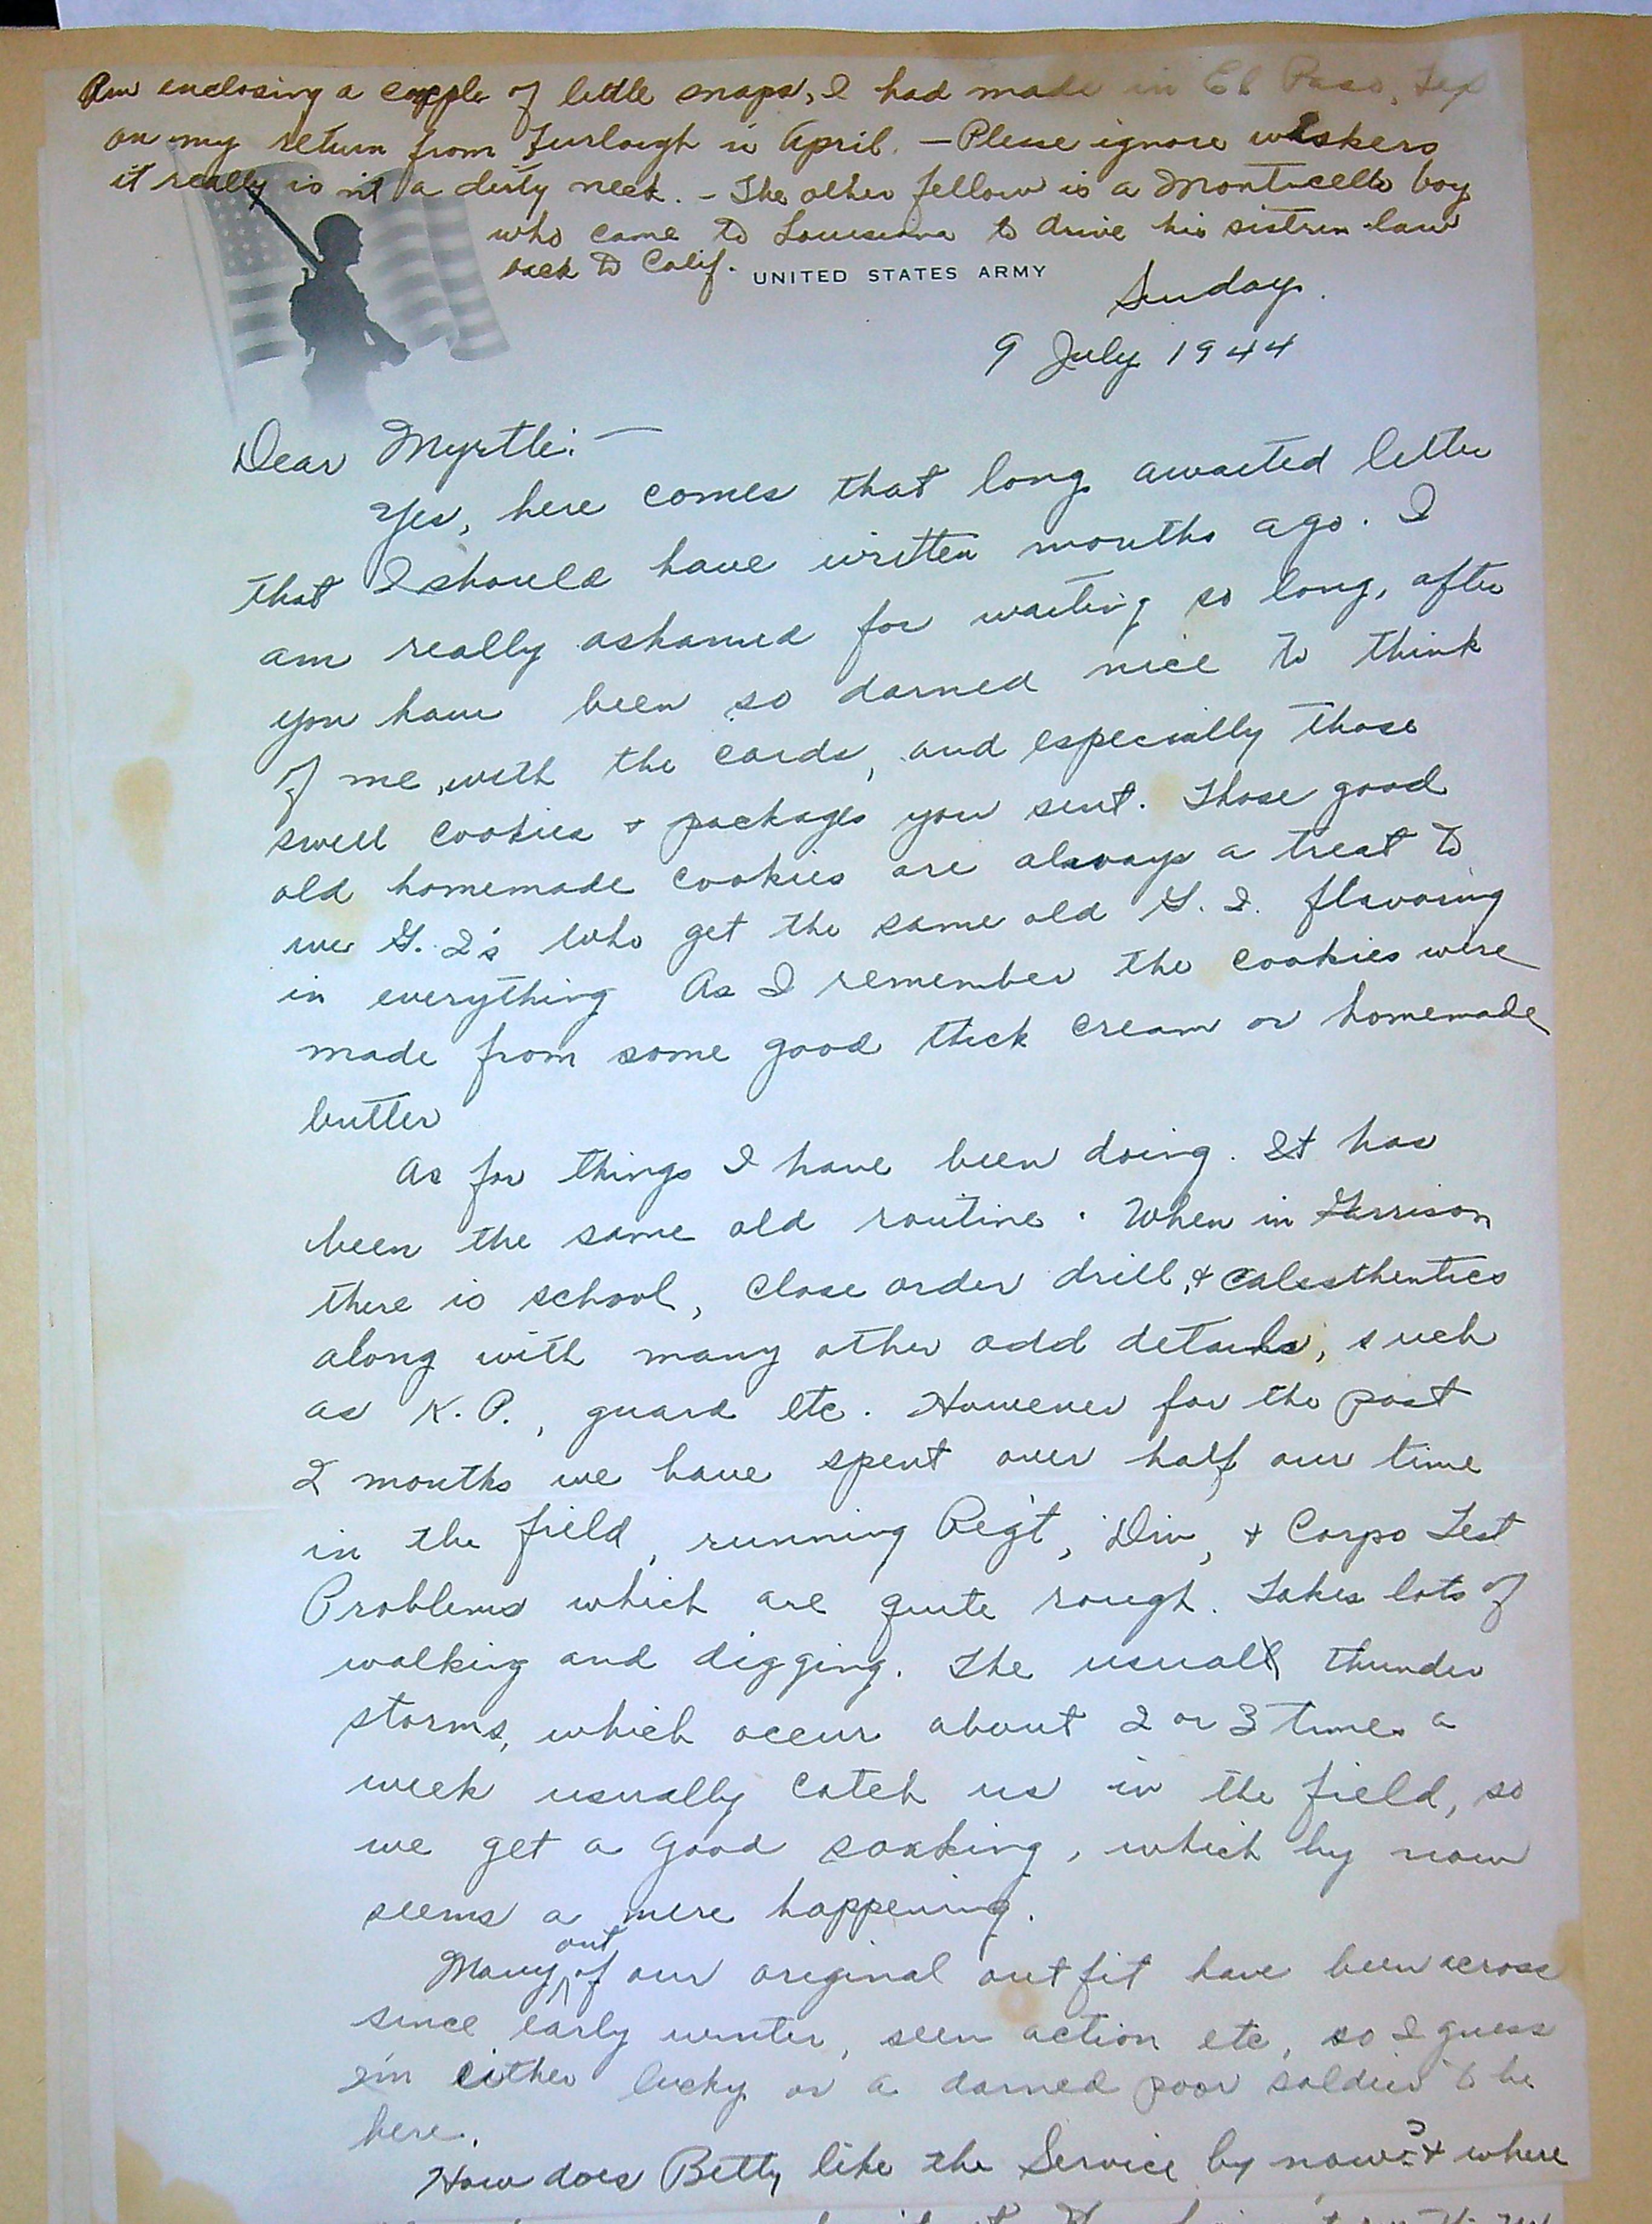 Am enclosing a couple of little snaps, I had made in El Paso, Tex
on my return from Furlough in April. — Please ignore wiskers
it really is n't a dirty neck. - The other fellow is a Monticello boy
who came to Louisiana to drive his sistrin law
back to Calif.
UNITED STATES ARMY
Sunday.
9 July 1944
Dear Myrtle: —
Yes, here comes that long awaited letter
that I should have written months ago. I
am really ashamed for waiting so long, after
you have been so darned nice to think
of me, with the cards, and especially those
swell cookies & packages you sent. Those good
old homemade cookies are always a treat to
we G. I's who get the same old G. I. flavoring
in everything As I remember the cookies were
made from some good thick cream or homemade
butter
As for things I have been doing. It has
been the same old routine. When in Garrison
there is school, close order drill, & calesthentics
along with many other odd details, such
as K. P., guard etc. However for the past
2 months we have spent over half our time
in the field, running Reg't, Div, & Corps Test
Problems which are quite rough. Takes lots of
walking and digging. The usual thunder
storms, which occur about 2 or 3 times a
week usually catch us in the field, so
we get a good soaking, which by now
seems a mere happening.
Many out of our original outfit have been across
since early winter, seen action etc, so I guess
I'm either lucky or a darned poor soldier to be
here.
How does Betty like the Service by now? & where